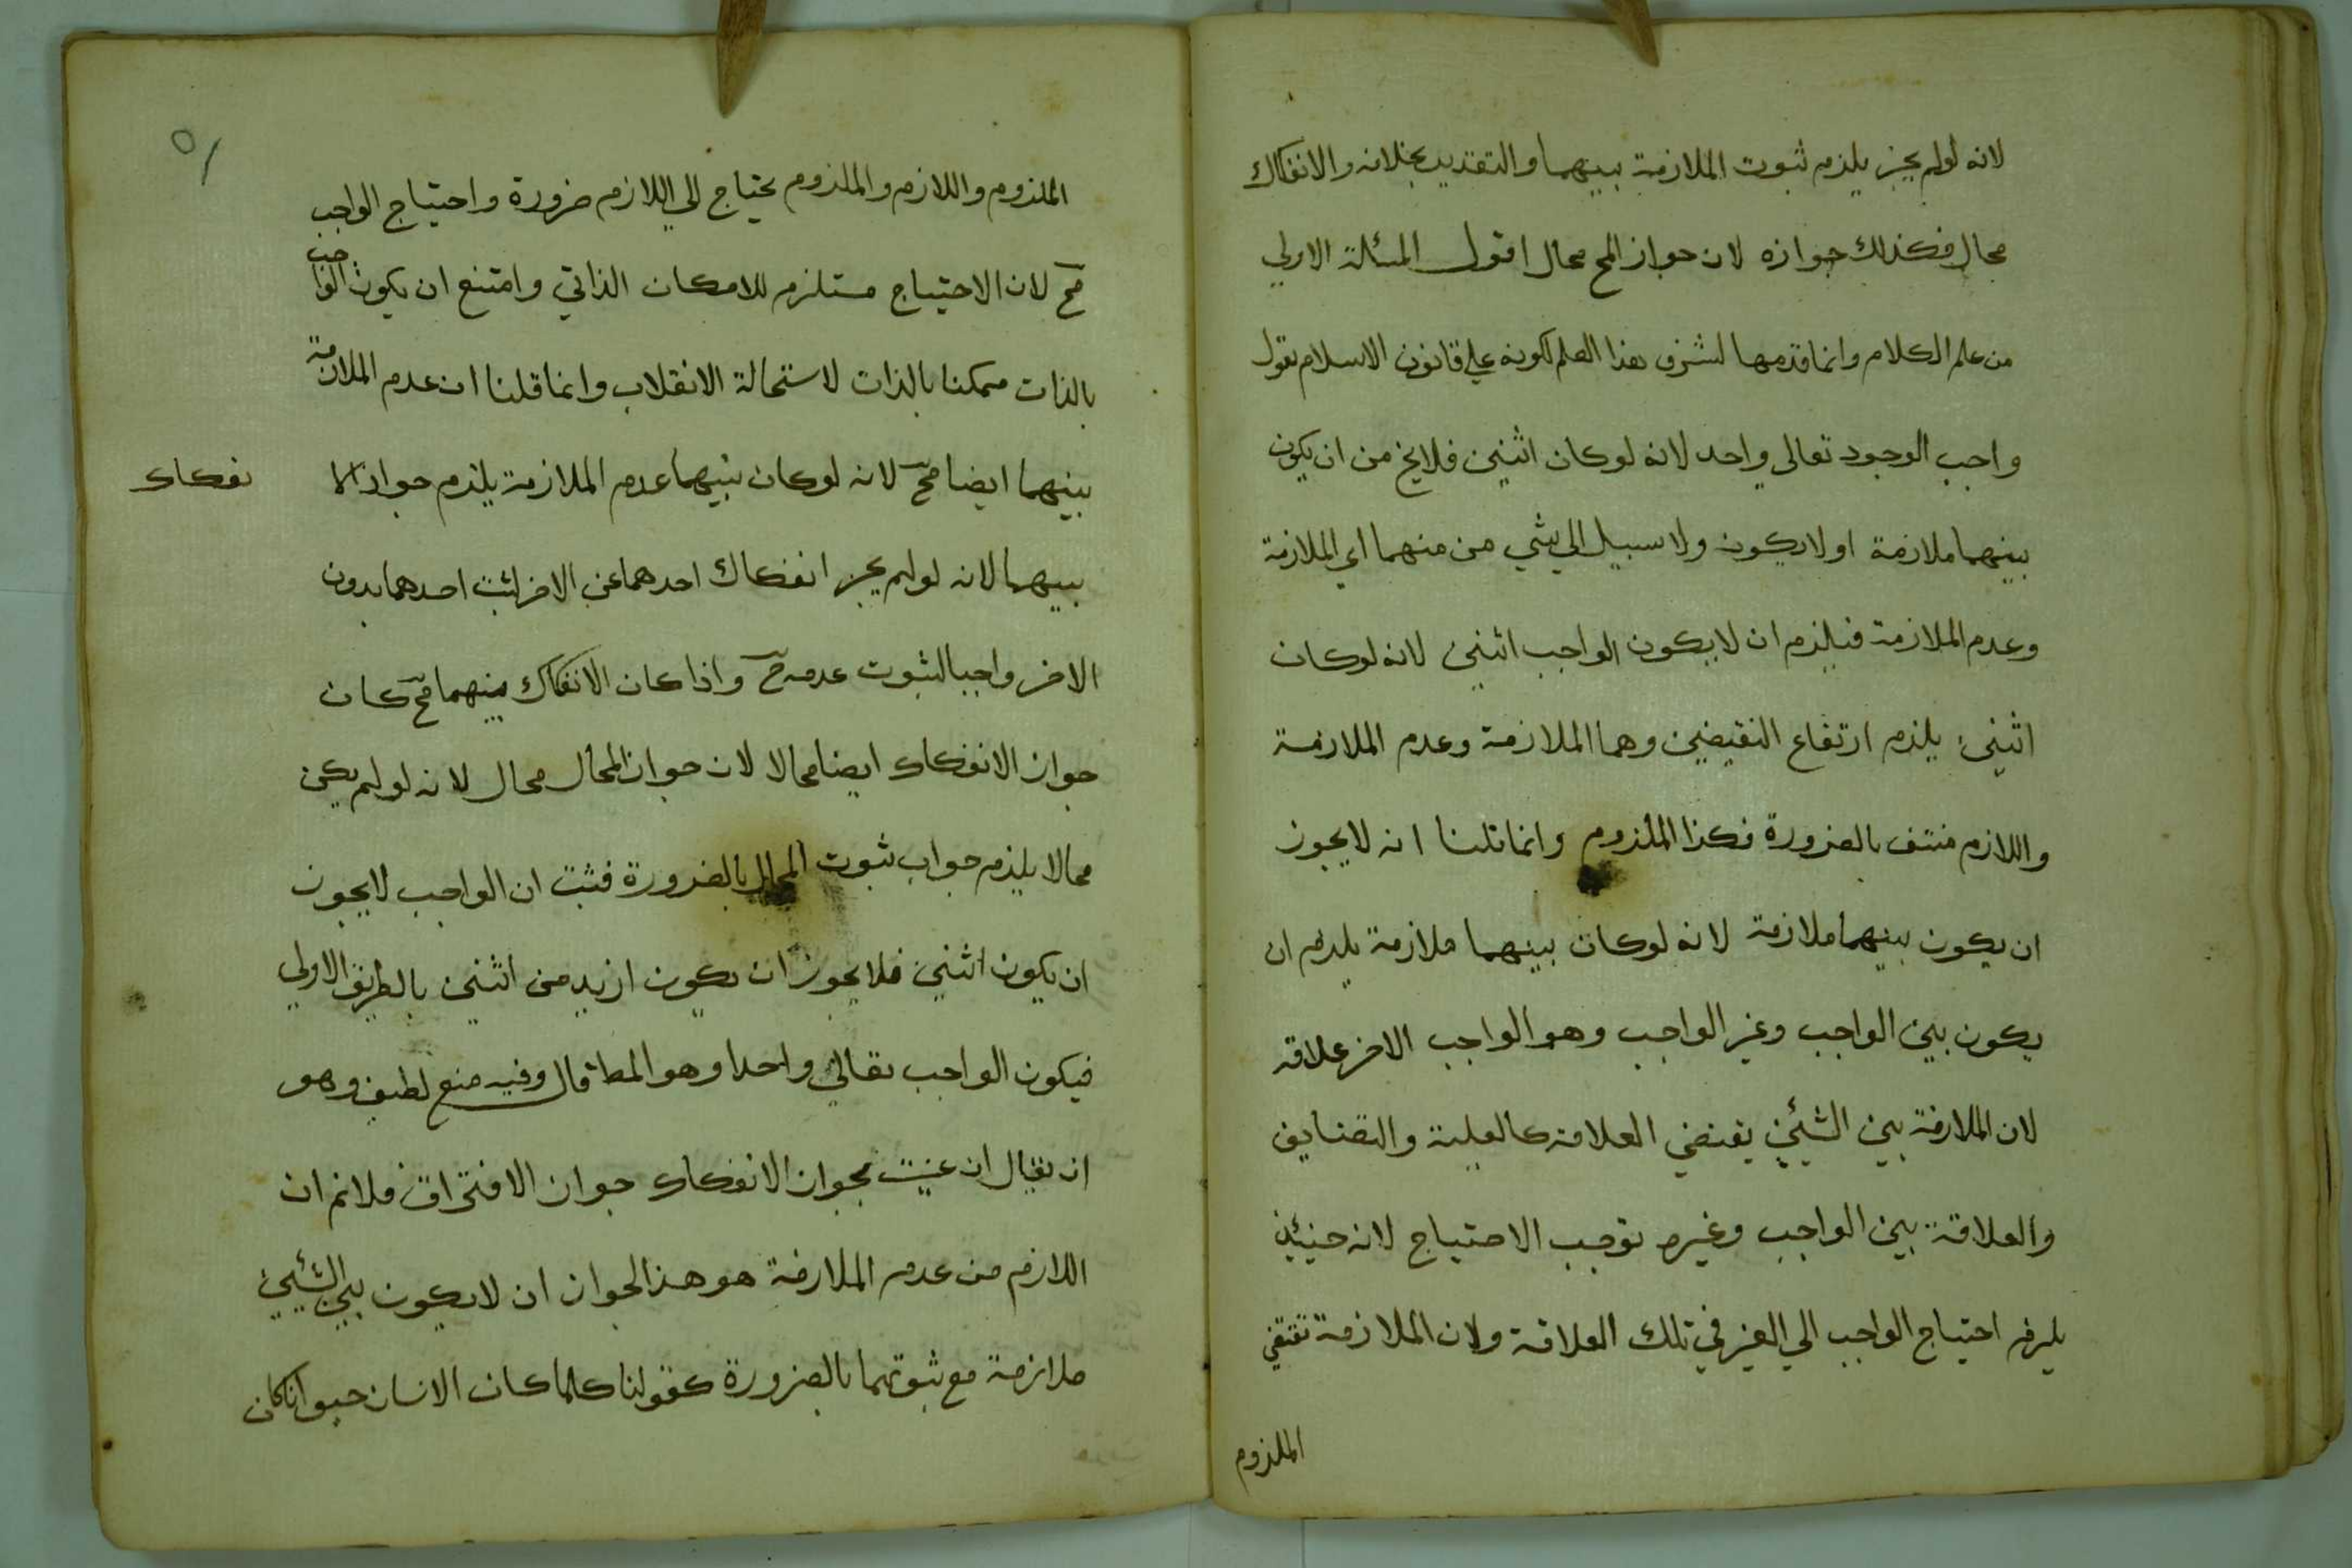 لانه لولم يجز يلزم ثبوت الملازمة بينهما والتقدير بخلافه والانفكاك
محال فكذلك جوازه لان جواز المح محال اقول المسئلة الاولي
من علم الكلام وانما قدمها لشرف هذا العلم لكونه علي قانون الاسلام نقول
واجب الوجود تعالى واحد لانه لوكان اثنين فلايخ من ان يكون
بينهما ملازمة اولايكون ولاسبيل الي شي من منهما اي الملازمة
وعدم الملازمة فيلزم ان لايكون الواجب اثنين لانه لوكان
اثنين يلزم ارتفاع النقيضين وهما الملازمة وعدم الملازمة
واللازم منتف بالضرورة فكذا الملزوم وانما قلنا انه لايجوز
ان يكون بينهما ملازمة لانه لوكان بينهما ملازمة يلزم ان
يكون بين الواجب وغير الواجب وهو الواجب الاخر علاقه
لان الملازمة بين الشيئين يقتضي العلاقة كالعلية والتضايف
والعلاقة بين الواجب وغيره توجب الاحتياج لانه حينئذ
يلزم احتياج الواجب الي الغير في تلك العلاقة ولان الملازمة تقتضي
الملزوم
٥١
الملزوم واللازم والملزوم يحتاج الي اللازم ضرورة واحتياج الواجب
مح لان الاحتياج مستلزم للامكان الذاتي وامتنع ان يكون الواجب
بالذات ممكنا بالذات لاستحالة الانقلاب وانما قلنا ان عدم الملازمة
بينهما ايضا مح لانه لوكان بينهما عدم الملازمة يلزم جواز الا
نفكاك
بينهما لانه لولم يجز انفكاك احدهما عن الاخر لثبت احدهما بدون
الاخر واجبا لثبوت عدمه مح واذا كان الانفكاك بينهما مح كان
جواز الانفكاك ايضا محالا لان جواز المحال محال لانه لولم يكن
محالا يلزم جواب ثبوت المحال بالضرورة فثبت ان الواجب لايجوز
ان يكون اثنين فلايجوز ان يكون ازيد من اثنين بالطريق الاولي
فيكون الواجب تعالي واحدا وهو المط قال وفيه منع لطيف وهو
ان يقال ان عنيت بجواز الانفكاك جواز الافتراق فلانم ان
اللازم من عدم الملازمة هو هذا الجواز ان لايكون بين الشيئين
ملازمة مع ثبوتهما بالضرورة كقولنا كلما كان الانسان حيوانا كان